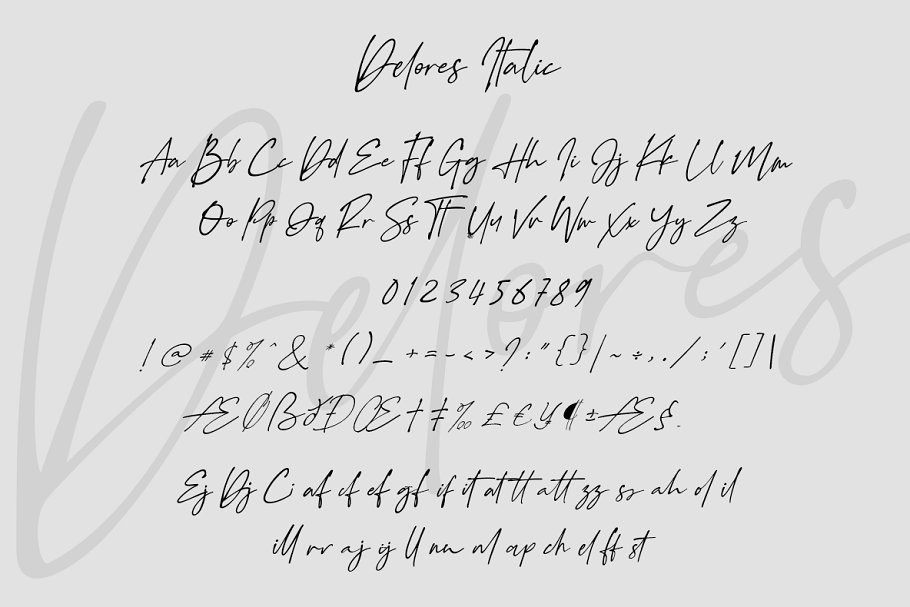 Delores Italic
Aa Bb Cc Dd Ee Ff Gg Hh Ii Jj Kk Ll Mm
Oo Pp Qq Rr Ss Tt Uu Vv Ww Xx Yy Zz
0123456789
! @ # $ % ^ & * ( ) _ + = - < > ? : " { } | ~ ÷ , . / ; ' [ ] \
Æ Ø ß Ð Œ † ‡ ‰ £ € ¥ ¶ ± Æ §
Ej Dj Cj af cf ef gf if it at tt att zz ss ah ol il
ill rr aj ij ll nn al ap ch el ff st
Delores